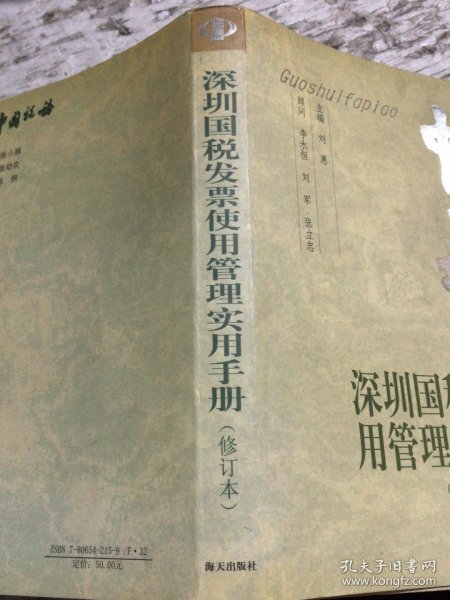 中国税务
张小娟
ISBN 7-80654-215-9 /F·32
定价: 50.00元
深圳国税发票使用管理实用手册
(修订本)
海天出版社
Guoshuifapiao
主编 刘惠
顾问 李永恒 刘军 张立忠
深圳国税
用管理
孔夫子旧书网
www.kongfz.com